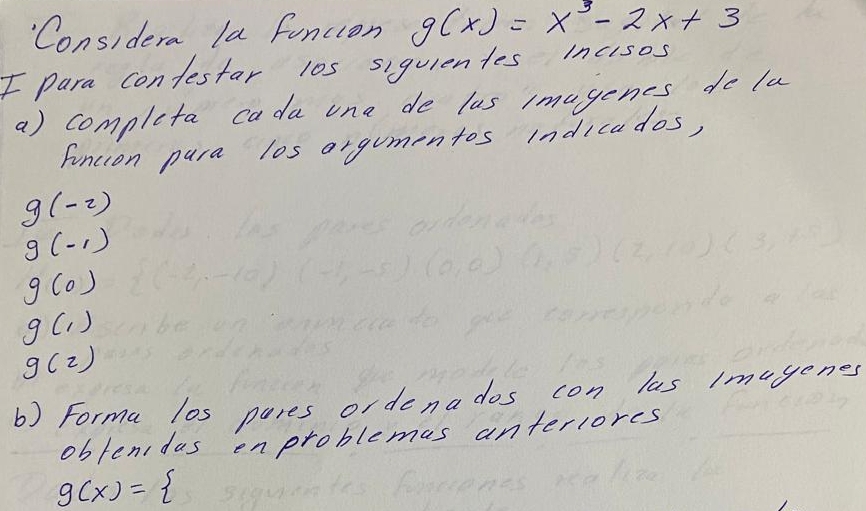 Considera la funcion g(x) = x³ - 2x + 3
I para contestar los siguientes incisos
a) completa cada una de las imagenes de la
funcion para los argumentos indicados,
g(-2)
g(-1)
g(0)
g(1)
g(2)
b) Forma los pares ordenados con las imagenes
obtenidas en problemas anteriores
g(x) = {